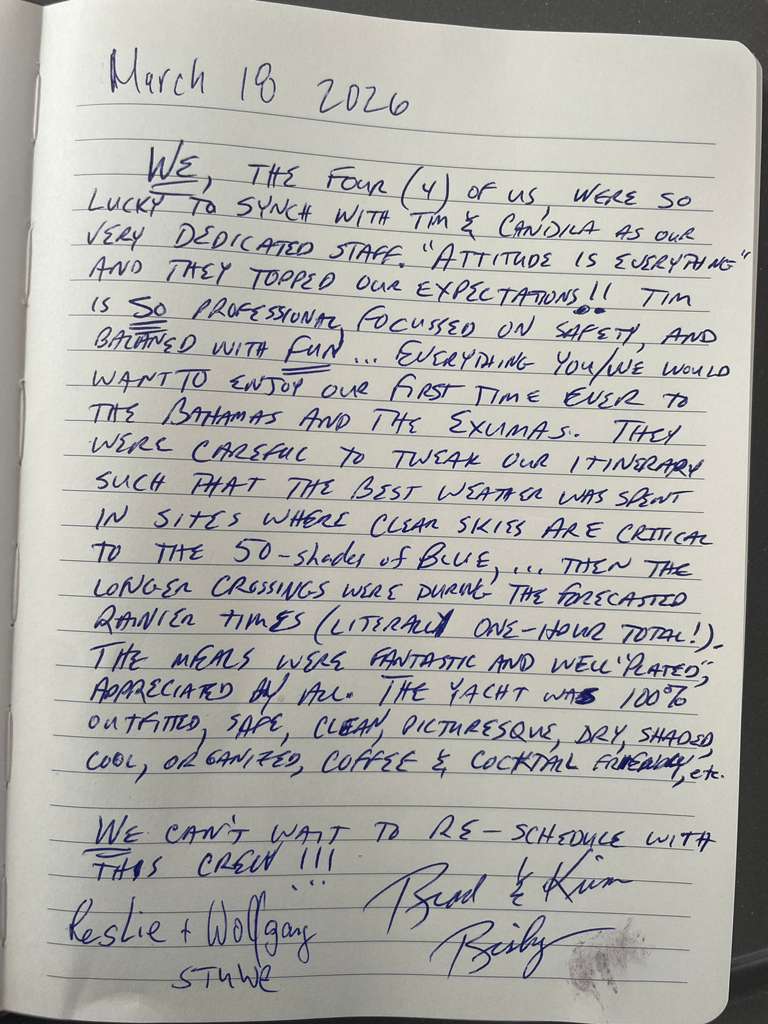 March 18 2026
WE, THE FOUR (4) OF US, WERE SO
LUCKY TO SYNCH WITH TIM & CANDILA AS OUR
VERY DEDICATED STAFF. "ATTITUDE IS EVERYTHING"
AND THEY TOPPED OUR EXPECTATIONS!! TIM
IS SO PROFESSIONAL, FOCUSSED ON SAFETY, AND
BALANED WITH FUN ... EVERYTHING YOU/WE WOULD
WANT TO ENJOY OUR FIRST TIME EVER TO
THE BAHAMAS AND THE EXUMAS. THEY
WERE CAREFUL TO TWEAK OUR ITINERARY
SUCH THAT THE BEST WEATHER WAS SPENT
IN SITES WHERE CLEAR SKIES ARE CRITICAL
TO THE 50-shades of BLUE, ... THEN THE
LONGER CROSSINGS WERE DURING THE FORECASTED
RAINIER TIMES (LITERALLY ONE-HOUR TOTAL!).
THE MEALS WERE FANTASTIC AND WELL "PLATED",
APPRECIATED BY ALL. THE YACHT WAS 100%
OUTFITTED, SAFE, CLEAN, PICTURESQUE, DRY, SHADED,
COOL, ORGANIZED, COFFEE & COCKTAIL FRIENDLY, etc.
WE CAN'T WAIT TO RE-SCHEDULE WITH
THIS CREW!!!
Brad & Kim
Leslie + Wolfgang
STUWE